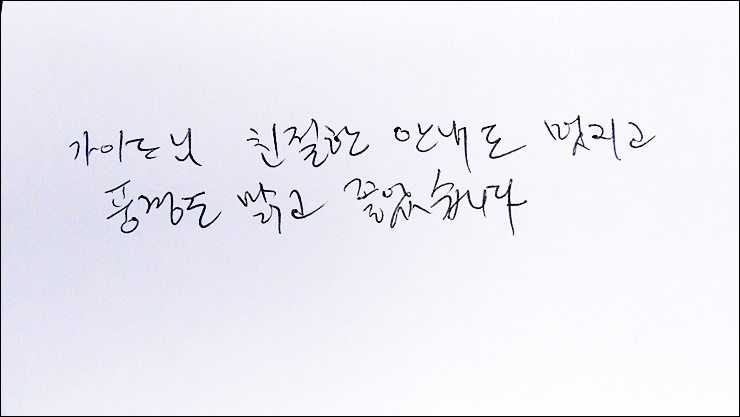 가이드님 친절한 안내도 멋지고
풍경도 맑고 좋았습니다